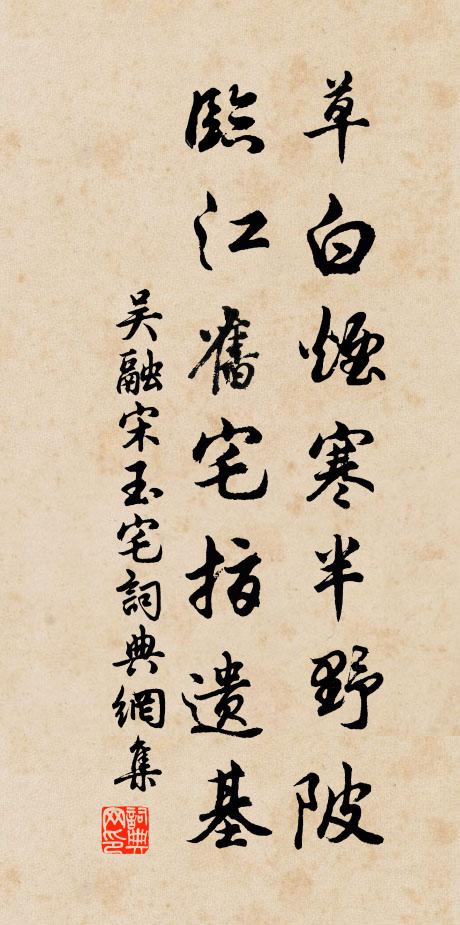 草白煙寒半野陂
臨江舊宅指遺基
吴融宋玉宅詞典網集
詞典
网印